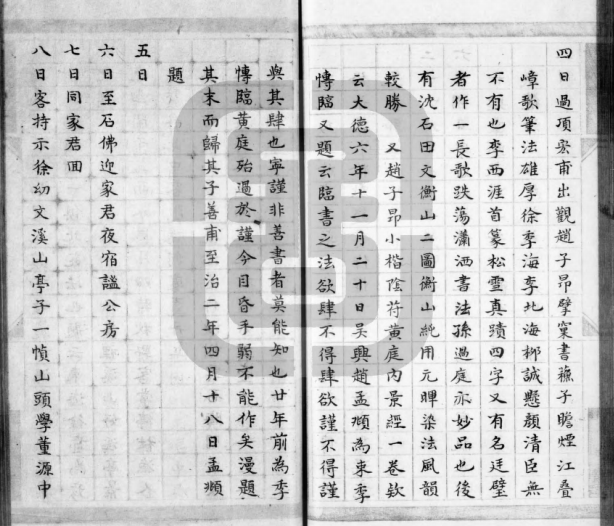 四日過項宏甫出觀趙子昂擘窠書蘓子瞻煙江疊
嶂歌筆法雄厚徐季海李北海柳誠懸顏清臣無
不有也李西涯首篆松雪真蹟四字又有名廷璧
者作一長歌跌蕩瀟洒書法孫過庭亦妙品也後
有沈石田文衡山二圖衡山純用元暉染法風韻
較勝 又趙子昂小楷陰符黃庭內景經一卷欵
云大德六年十一月二十日吳興趙孟頫為束季
博臨又題云臨書之法欲肆不得肆欲謹不得謹
與其肆也寧謹非善書者莫能知也廿年前為季
博臨黃庭殆過於謹今目昏手弱不能作矣漫題
其末而歸其子善甫至治二年四月十八日孟頫
題
五日
六日至石佛迎家君夜宿謐公房
七日同家君回
八日客持示徐幼文溪山亭子一幀山頭學董源中